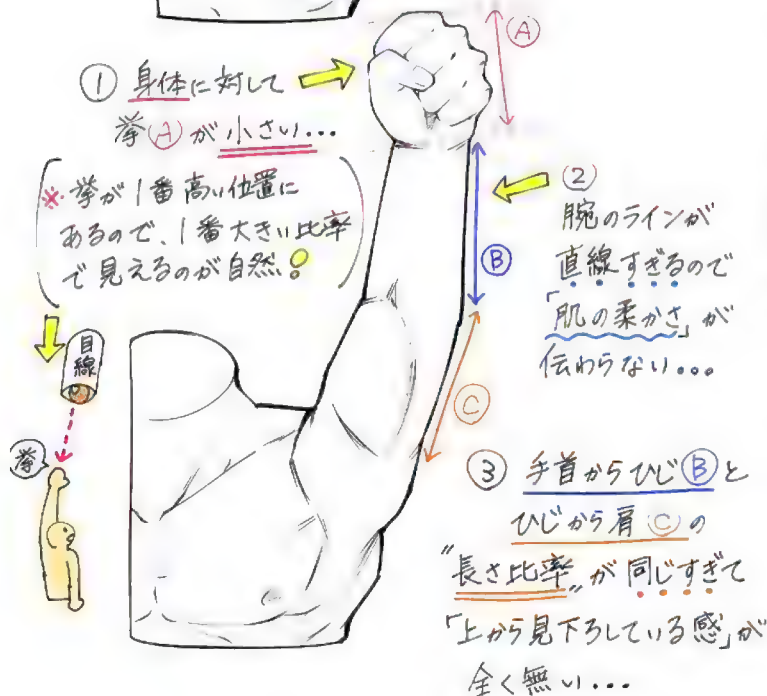 ① 身体に対して
拳Ⓐが小さい…
※拳が1番高い位置に
あるので、1番大きい比率
で見えるのが自然!
目線
拳
Ⓐ
②
腕のラインが
直線すぎるので
「肌の柔かさ」が
伝わらない…
Ⓑ
Ⓒ
③ 手首からひじⒷと
ひじから肩Ⓒの
"長さ比率"が同じすぎて
「上から見下ろしている感」が
全く無い…